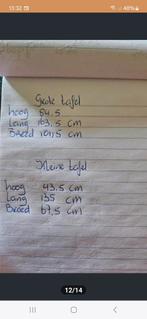 13:32
48%
Grote tafel
hoog 84.5
Lang 163,5 cm
Breed 101,5 cm
Kleine tafel
hoog 43.5 cm
Lang 135 cm
Breed 67,5 cm
12/14